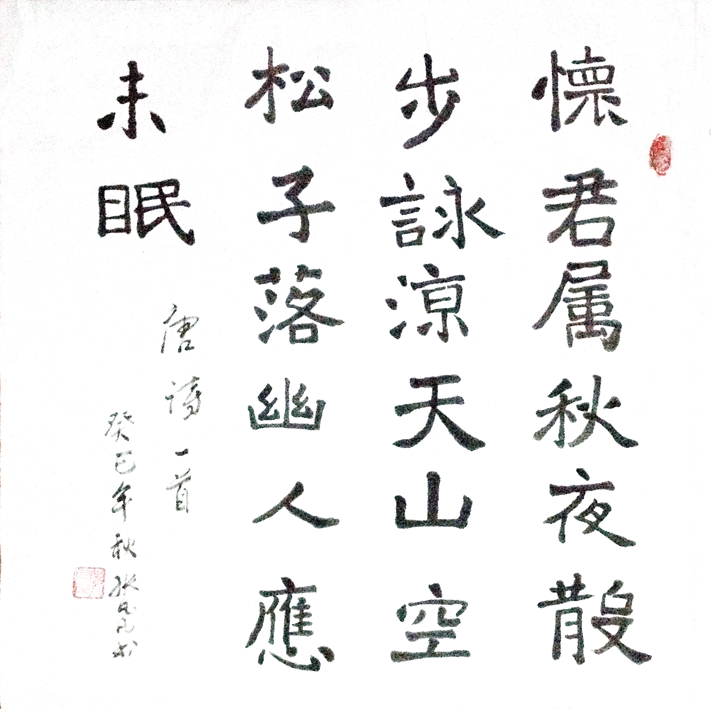 懷君属秋夜散
步詠涼天山空
松子落幽人應
未眠
唐詩一首
癸巳年秋張